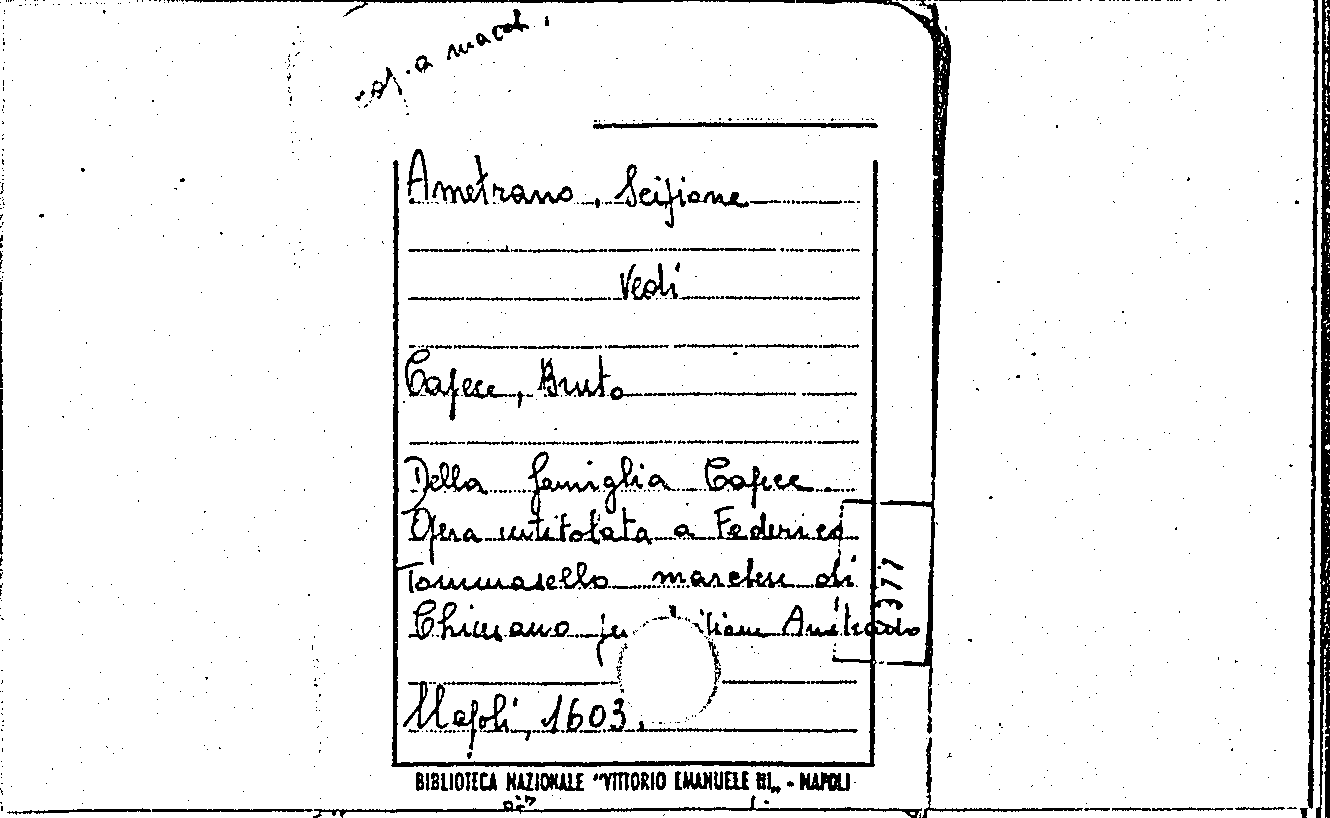 Ametrano, Scipione
Vedi
Capece, Bruto
Della famiglia Capece.
Opera intitolata a Federico
Tommasello marchese di
Chiusano Ametrado
Napoli, 1603.
377
BIBLIOTECA NAZIONALE "VITTORIO EMANUELE III„ - NAPOLI